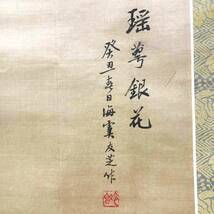 瑶萼銀花
癸丑春日海虞友芝作